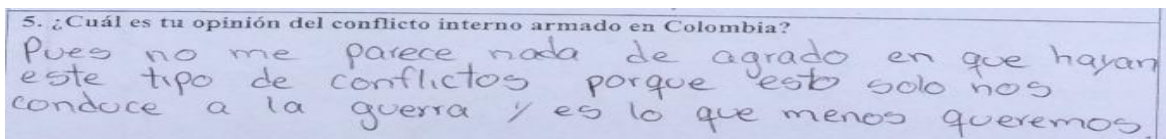 5. ¿Cuál es tu opinión del conflicto interno armado en Colombia?
Pues no me parece nada de agrado en que hayan
este tipo de conflictos porque esto solo nos
conduce a la guerra y es lo que menos queremos.